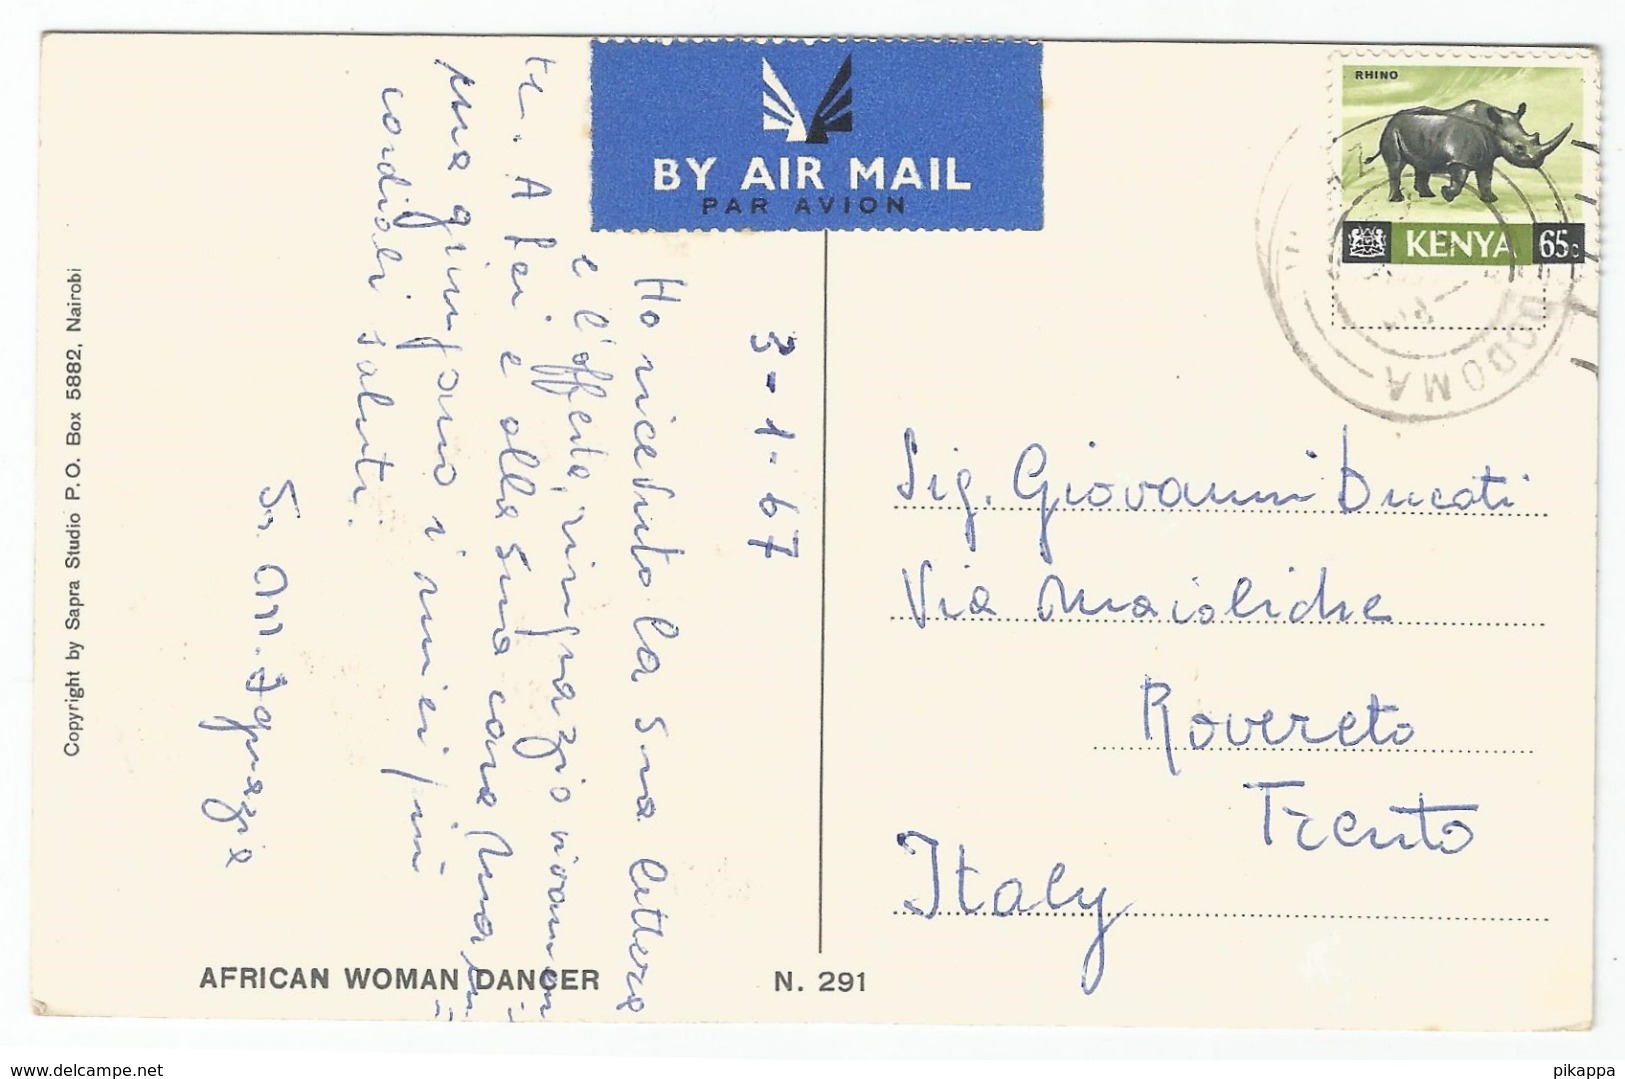 BY AIR MAIL
PAR AVION
RHINO
KENYA 65c
DODOMA
3-1-67
Ho ricevuto la sua lettera
e l'offerta, ringrazio vivamen
te. A Lei e alla sua cara mamma
giungano i miei più
cordiali saluti.
Sr. M. Ignazia
Sig. Giovanni Ducati
Via Maioliche
Rovereto
Trento
Italy
Copyright by Sapra Studio P.O. Box 5882, Nairobi
AFRICAN WOMAN DANCER
N. 291
www.delcampe.net
pikappa